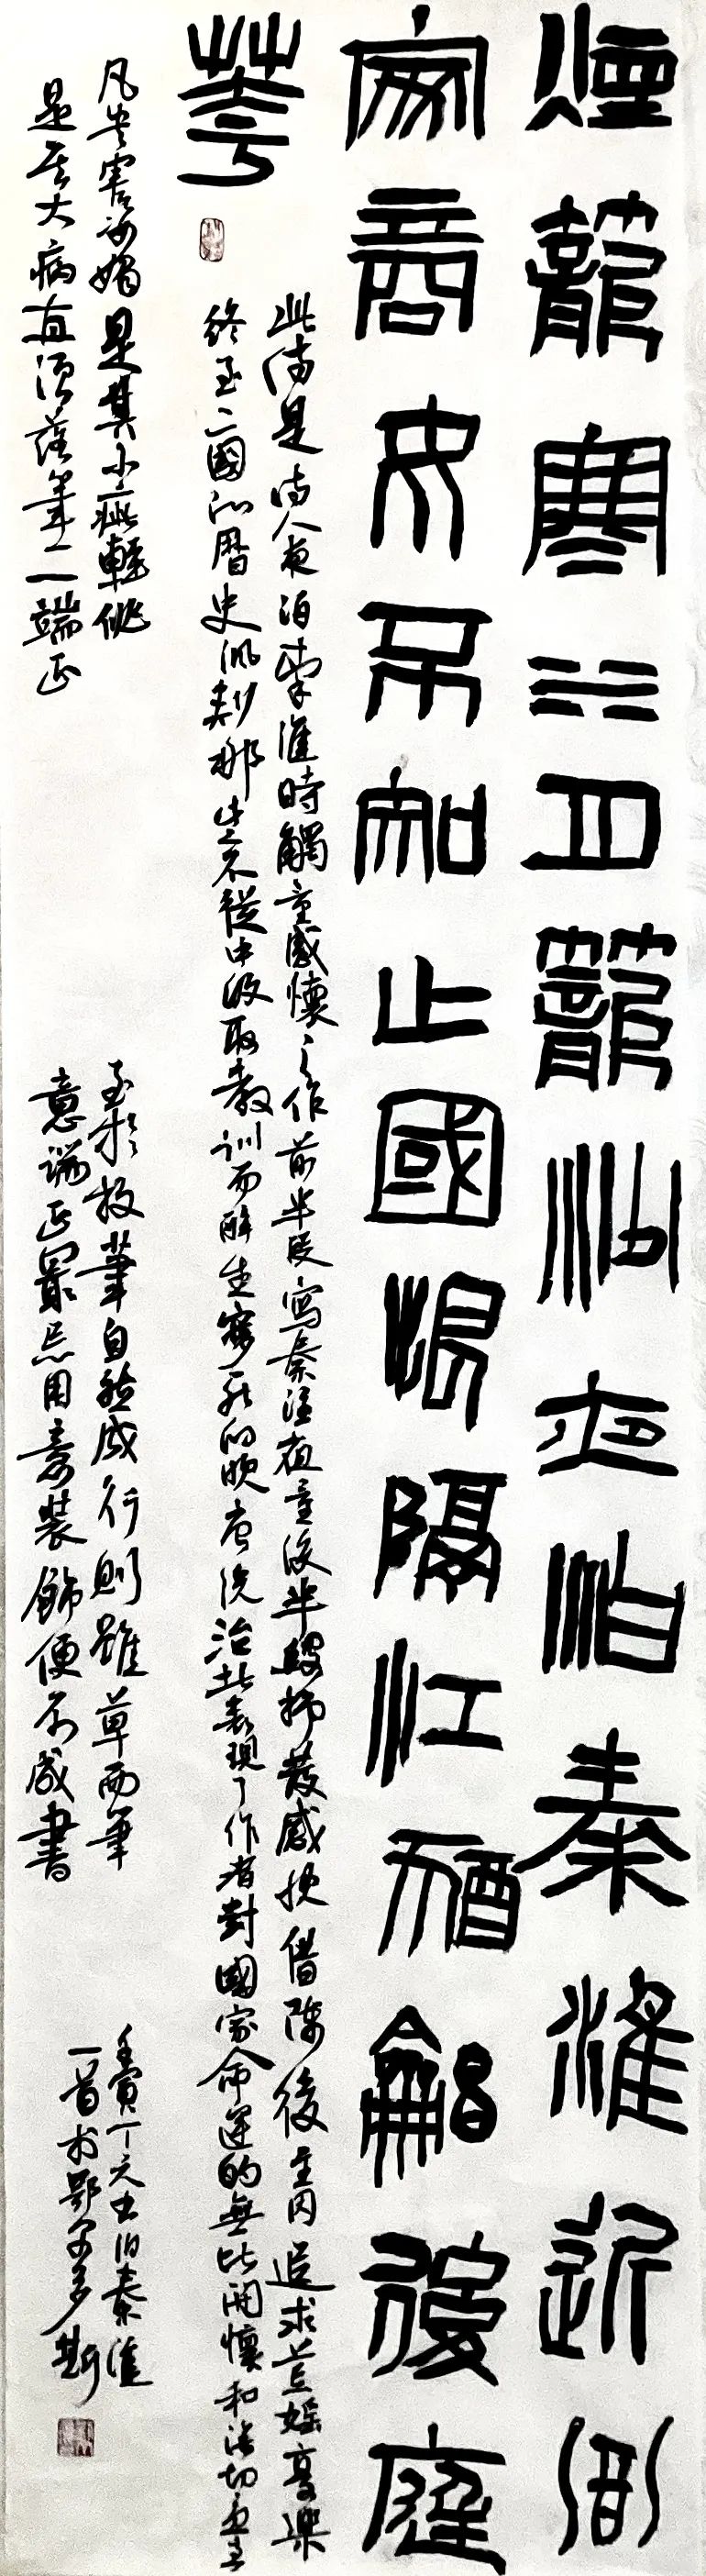 煙籠寒水月籠沙夜泊秦淮近酒
家商女不知亡國恨隔江猶唱後庭
華
此詩是詩人夜泊秦淮時觸景感懷之作前半段寫秦淮夜景後半段抒發感慨借陳後主因追求荒婬享樂
終至亡國的歷史諷刺那些不從中汲取教訓而醉生夢死的晚唐統治者表現了作者對國家命運的無比關懷和深切憂
凡安害姿媚是其小疵輕佻
是其大病直須落筆一一端正
至於放筆自然成行則雖草而筆
意端正最忌用意裝飾便不成書
壬寅丁元書泊秦淮
一首於鄂尔多斯